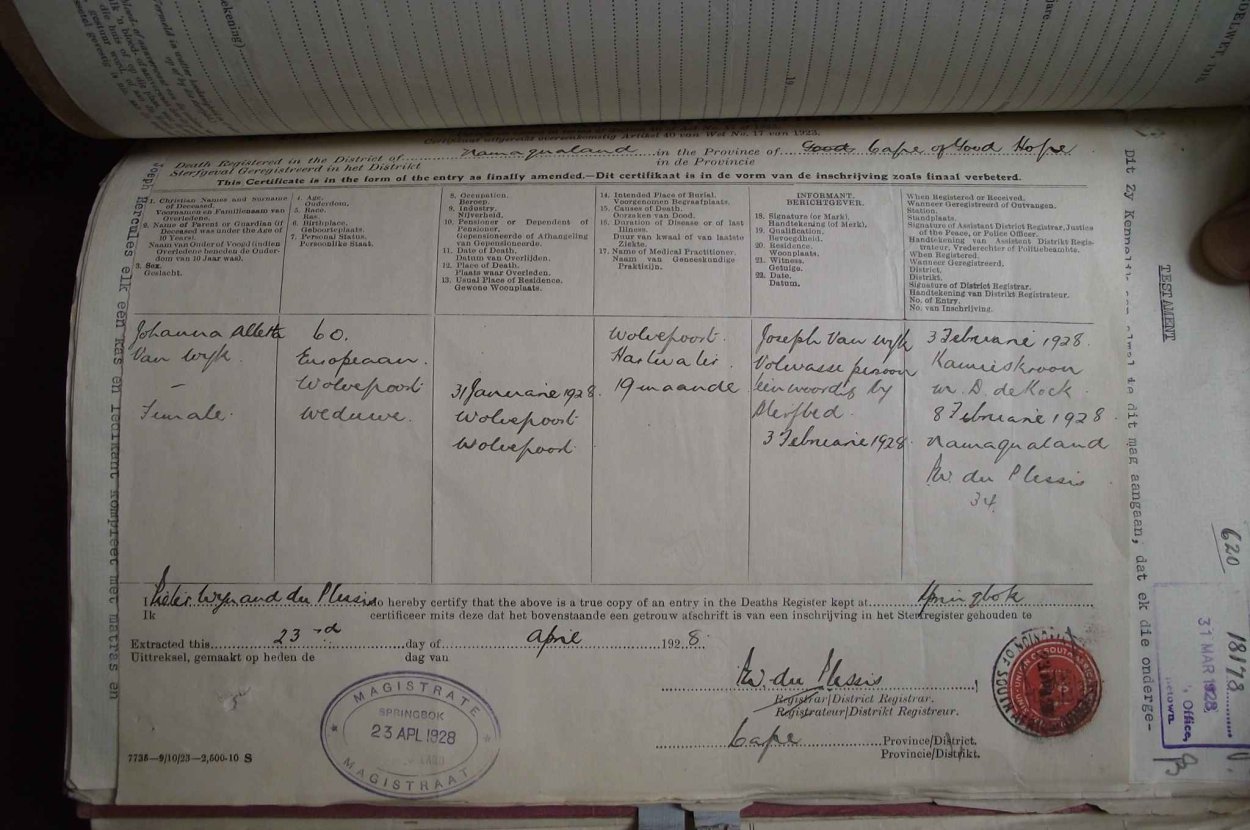 Certifikaat uitgereikt overeenkomstig Artikel 40 van Wet No. 17 van 1923.
Death Registered in the District of Namaqualand in the Province of Good Cape of Good Hope
Sterfgeval Geregistreerd in het Distrikt in de Provincie
This Certificate is in the form of the entry as finally amended.—Dit certifikaat is in de vorm van de inschrijving zoals finaal verbeterd.
1. Christian Names and Surname
of Deceased.
Voornamen en Familienaam van
Overledene.
2. Name of Parent or Guardian (if
Deceased was under the Age of
10 Years).
Naam van Ouder of Voogd (indien
Overledene beneden de Ouder-
dom van 10 Jaar was).
3. Sex.
Geslacht.
4. Age.
Ouderdom.
5. Race.
Ras.
6. Birthplace.
Geboorteplaats.
7. Personal Status.
Persoonlike Staat.
8. Occupation.
Beroep.
9. Industry.
Nijverheid.
10. Pensioner or Dependent of
Pensioner.
Gepensioneerde of Afhangeling
van Gepensioneerde.
11. Date of Death.
Datum van Overlijden.
12. Place of Death.
Plaats waar Overleden.
13. Usual Place of Residence.
Gewone Woonplaats.
14. Intended Place of Burial.
Voorgenomen Begraafplaats.
15. Causes of Death.
Oorzaken van Dood.
16. Duration of Disease or of last
Illness.
Duur van kwaal of van laatste
Ziekte.
17. Name of Medical Practitioner.
Naam van Geneeskundige
Praktisijn.
INFORMANT.
BERICHTGEVER.
18. Signature (or Mark).
Handtekening (of Merk).
19. Qualification.
Bevoegdheid.
20. Residence.
Woonplaats.
21. Witness.
Getuige.
22. Date.
Datum.
When Registered or Received.
Wanneer Geregistreerd of Ontvangen.
Station.
Standplaats.
Signature of Assistant District Registrar, Justice
of the Peace, or Police Officer.
Handtekening van Assistent Distrikt Regis-
trateur, Vrederechter of Politiebeambte.
When Registered.
Wanneer Geregistreerd.
District.
Distrikt.
Signature of District Registrar.
Handtekening van Distrikt Registrateur.
No. of Entry.
No. van Inschrijving.
Johanna Aletta
Van Wyk.
–
Female.
60.
Europeaan.
Wolvepoort
Weduwe.
31 Januarie 1928.
Wolvepoort
Wolvepoort
Wolvepoort.
Hartwater
19 maande
Joseph Van Wyk
Volwasse persoon
teenwoordig by
Sterfbed.
3 Februarie 1928.
3 Februarie 1928.
Kamieskroon
W. D. de Kock.
8 Februarie 1928.
Namaqualand
P.W. du Plessis
34.
I Pieter Wynand du Plessis do hereby certify that the above is a true copy of an entry in the Deaths Register kept at Springbok
Ik certificeer mits deze dat het bovenstaande een getrouw afschrift is van een inschrijving in het Sterfregister gehouden te
Extracted this 23rd day of April 1928.
Uittreksel, gemaakt op heden de dag van
P.W. du Plessis
Registrar/District Registrar.
Registrateur/Distrikt Registreur.
Cape Province/District.
Provincie/Distrikt.
MAGISTRATE
SPRINGBOK
23 APL 1928
MAGISTRAAT
7735—9/10/23—2,500-10 S
UNION OF SOUTH AFRICA
Joseph Hercules elk een kas en ledikant kompleet met matras en
TESTAMENT
Dit Zy Kennelik aan almal die dit mag aangaan; dat ek die onderge-
620
18178
31 MAR 1928
Office,